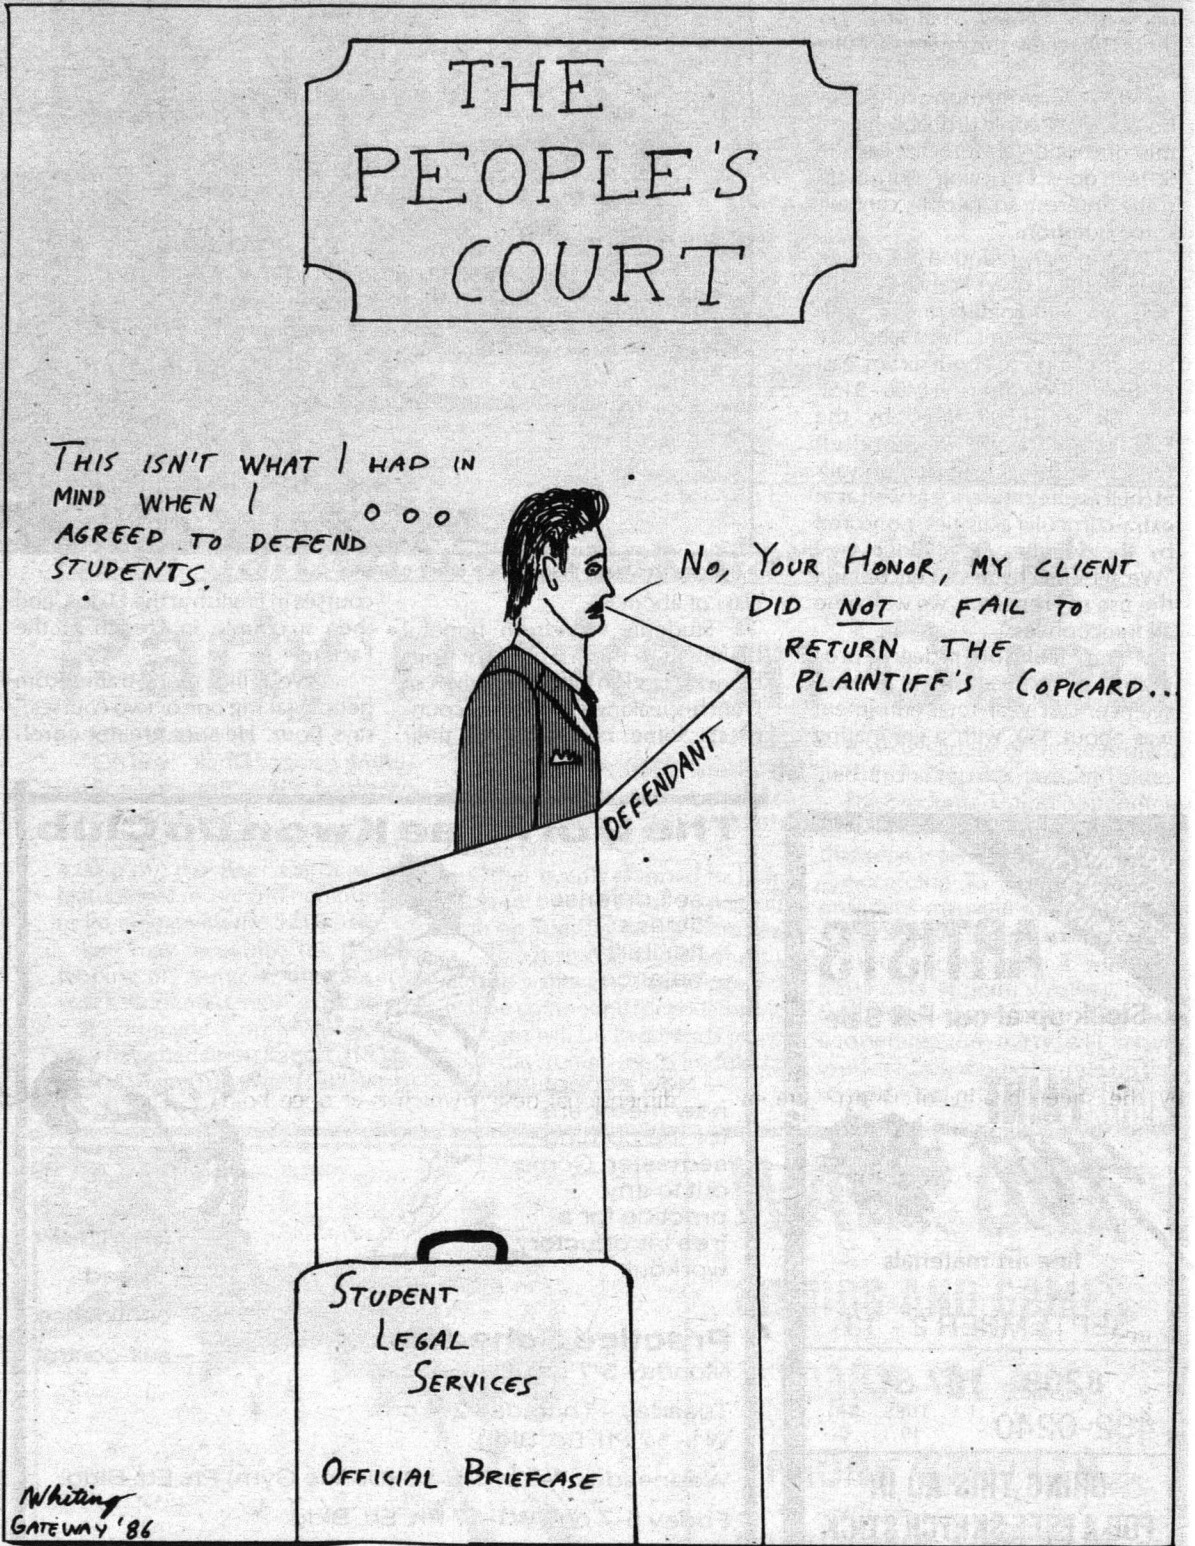 THE
PEOPLE'S
COURT
THIS ISN'T WHAT I HAD IN
MIND WHEN I
AGREED TO DEFEND
STUDENTS.
NO, YOUR HONOR, MY CLIENT
DID NOT FAIL TO
RETURN THE
PLAINTIFF'S COPICARD...
DEFENDANT
STUDENT
LEGAL
SERVICES
OFFICIAL BRIEFCASE
Whiting
GATEWAY '86